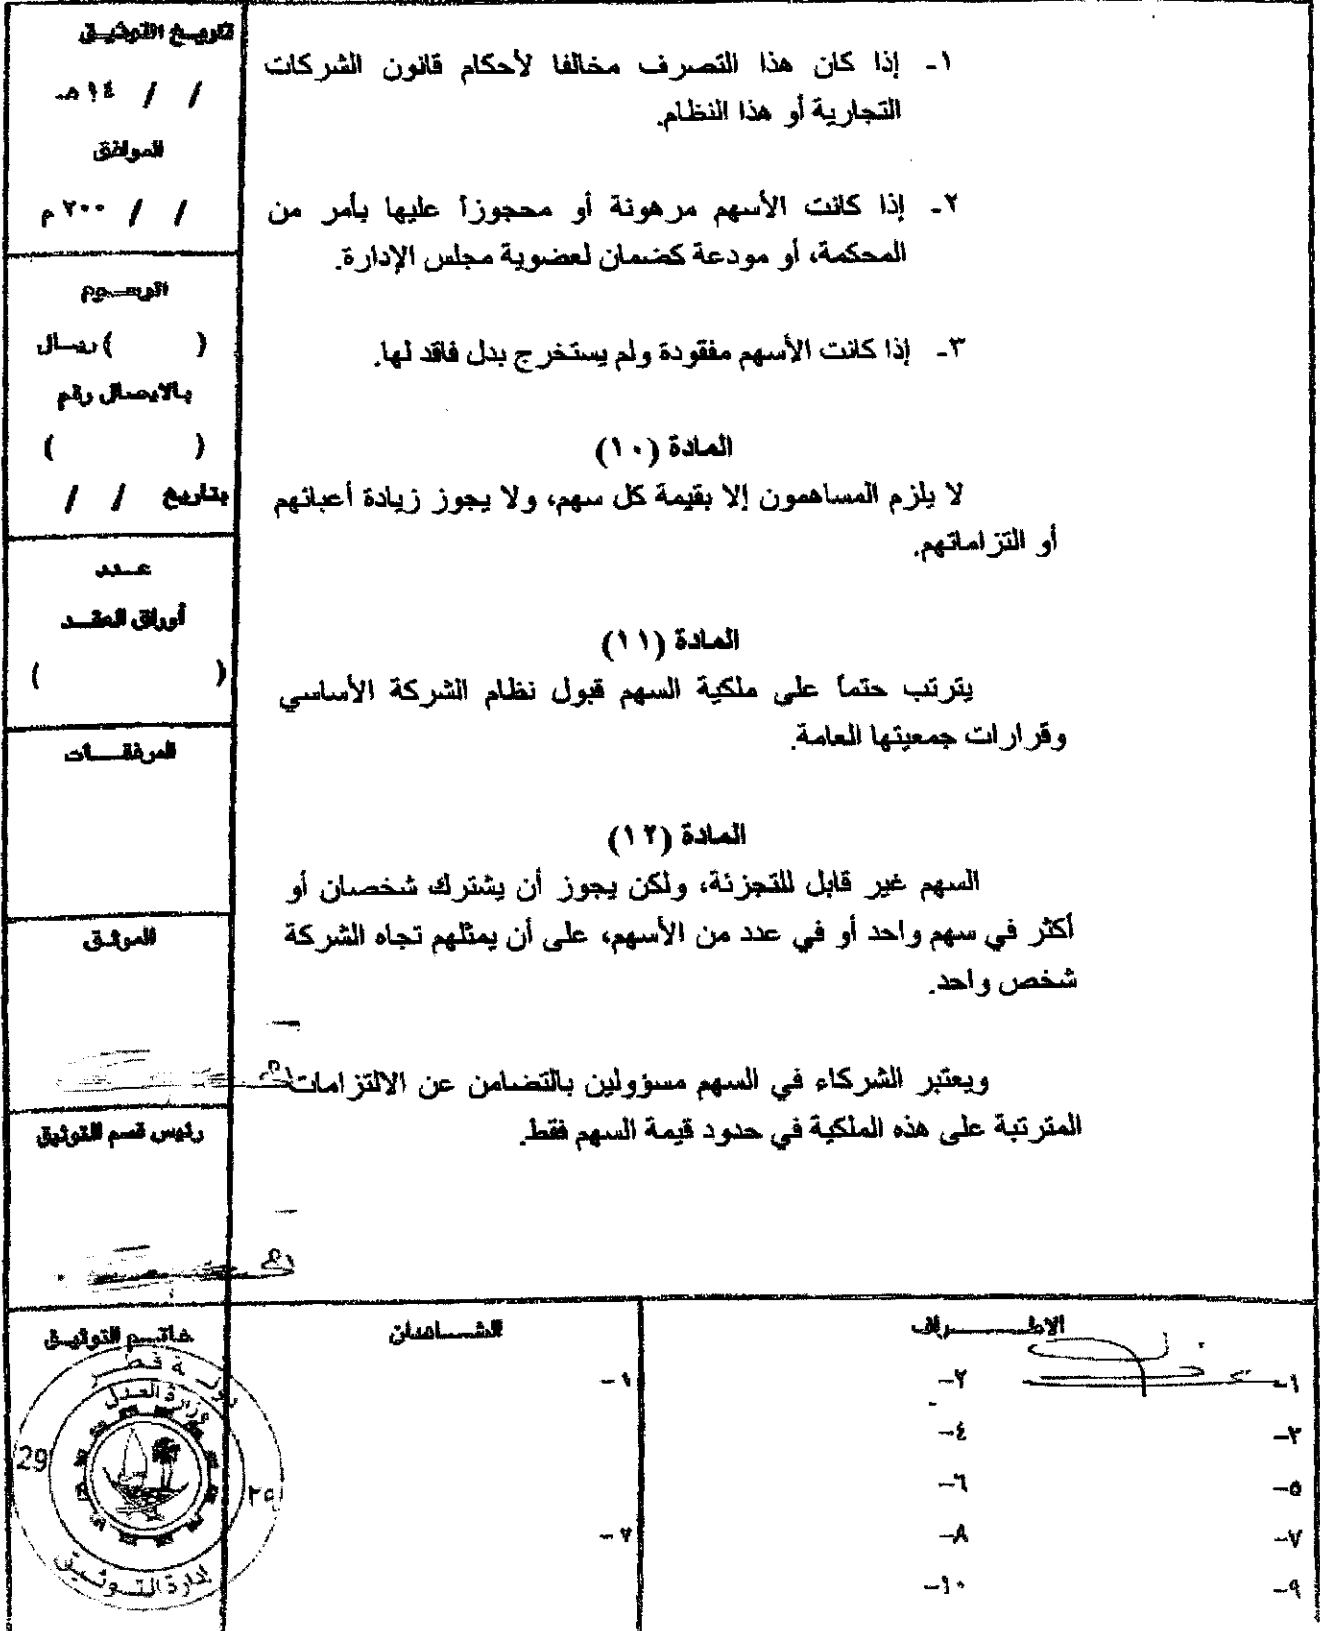 ١- إذا كان هذا التصرف مخالفا لأحكام قانون الشركات
التجارية أو هذا النظام.
٢- إذا كانت الأسهم مرهونة أو محجوزاً عليها بأمر من
المحكمة، أو مودعة كضمان لعضوية مجلس الإدارة.
٣- إذا كانت الأسهم مفقودة ولم يستخرج بدل فاقد لها.
المادة (١٠)
لا يلزم المساهمون إلا بقيمة كل سهم، ولا يجوز زيادة أعبائهم
أو التزاماتهم.
المادة (١١)
يترتب حتماً على ملكية السهم قبول نظام الشركة الأساسي
وقرارات جمعيتها العامة.
المادة (١٢)
السهم غير قابل للتجزئة، ولكن يجوز أن يشترك شخصان أو
أكثر في سهم واحد أو في عدد من الأسهم، على أن يمثلهم تجاه الشركة
شخص واحد.
ويعتبر الشركاء في السهم مسؤولين بالتضامن عن الالتزامات
المترتبة على هذه الملكية في حدود قيمة السهم فقط.
تاريخ التوثيق
/ / ١٤هـ
الموافق
/ / ٢٠٠م
الرسوم
( ) ريال
بالايصال رقم
( )
بتاريخ / /
عدد
أوراق العقد
( )
المرفقات
الموثق
رئيس قسم التوثيق
الاطراف
١- ٢-
٣- ٤-
٥- ٦-
٧- ٨-
٩- ١٠-
الشاهدان
١-
٢-
خاتم التوثيق
دولة قطر
وزارة العدل
29 ٢٩
إدارة التوثيق